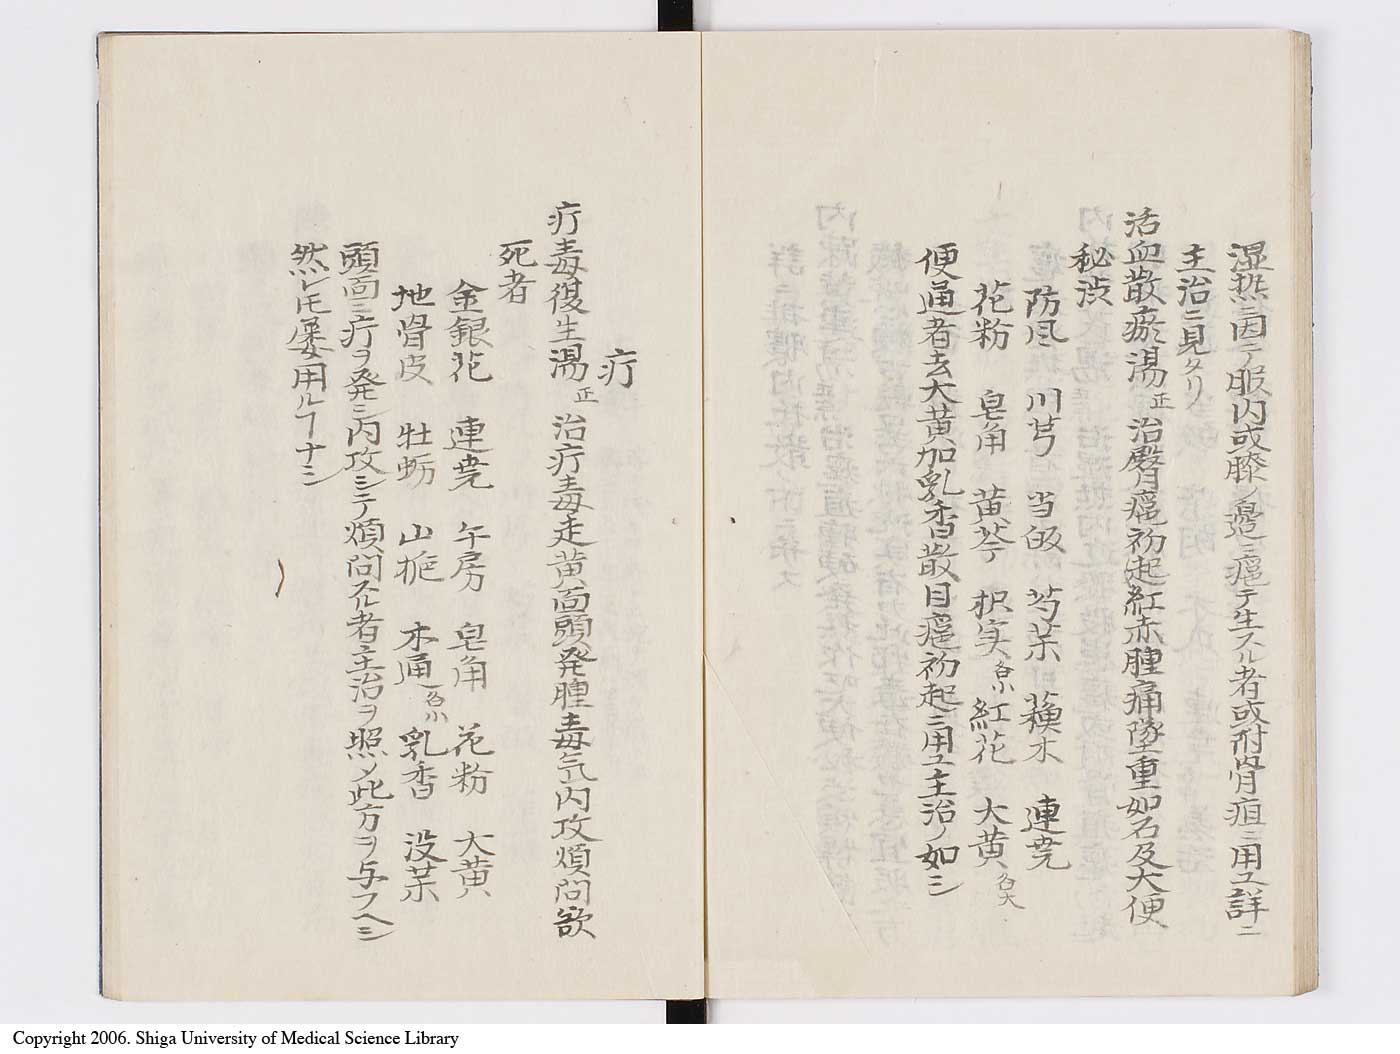 湿熱ニ因テ股内或膝ノ邉ニ癰テ生スル者或附骨疽ニ用ユ詳ニ
主治ニ見タリ
活血散瘀湯 正 治臀癰初起紅赤腫痛墜重如石及大便
秘渋
防風 川芎 当皈 芍薬 蘓木 連翹
花粉 皂角 黄芩 枳実各小 紅花 大黄各大
便通者去大黄加乳香散目癰初起ニ用ユ主治ノ如シ
疔
疔毒復生湯 正 治疔毒走黄面頭発腫毒気内攻煩悶欲
死者
金銀花 連翹 午房 皂角 花粉 大黄
地骨皮 牡蛎 山梔 木通各小 乳香 没薬
頭面ニ疔ヲ発シ内攻シテ煩悶スル者主治ヲ照ノ此方ヲ与フヘシ
然レ𪜈屡用ルヿナシ
Copyright 2006. Shiga University of Medical Science Library